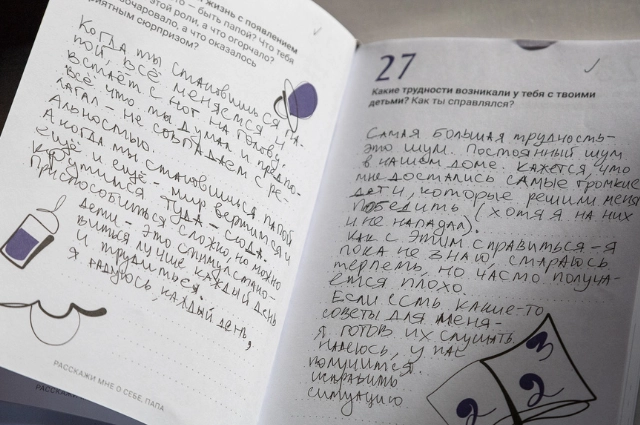 жизнь с появлением
— быть папой? Что тебя
очаровало, а что оказалось
этой роли, а что огорчало?
приятным сюрпризом?
Когда ты становишься па-
пой, всё меняется и
встаёт с ног на голову.
Всё что, ты думал и предпо-
лагал - не совпадает с ре-
альностью.
А когда ты становишься папой
ещё и ещё - мир вертится и
крутится туда - сюда.
Приспособиться сложно, но можно
дети - это стимул стано-
виться лучше каждый день
и трудиться.
Я радуюсь, каждый день,
РАССКАЖИ МНЕ О СЕБЕ, ПАПА
27
Какие трудности возникали у тебя с твоими
детьми? Как ты справлялся?
Самая большая трудность-
это шум. Постоянный шум
в нашем доме. Кажется, что
мне достались самые громкие
дети, которые решили меня
победить (хотя я на них
и не нападал).
Как с этим справиться - я
пока не знаю, стараюсь
терпеть, но часто получа-
ется плохо.
Если есть какие-то
советы для меня-
я готов их слушать
надеюсь, у нас
получится.
исправить
ситуацию
3
2
2